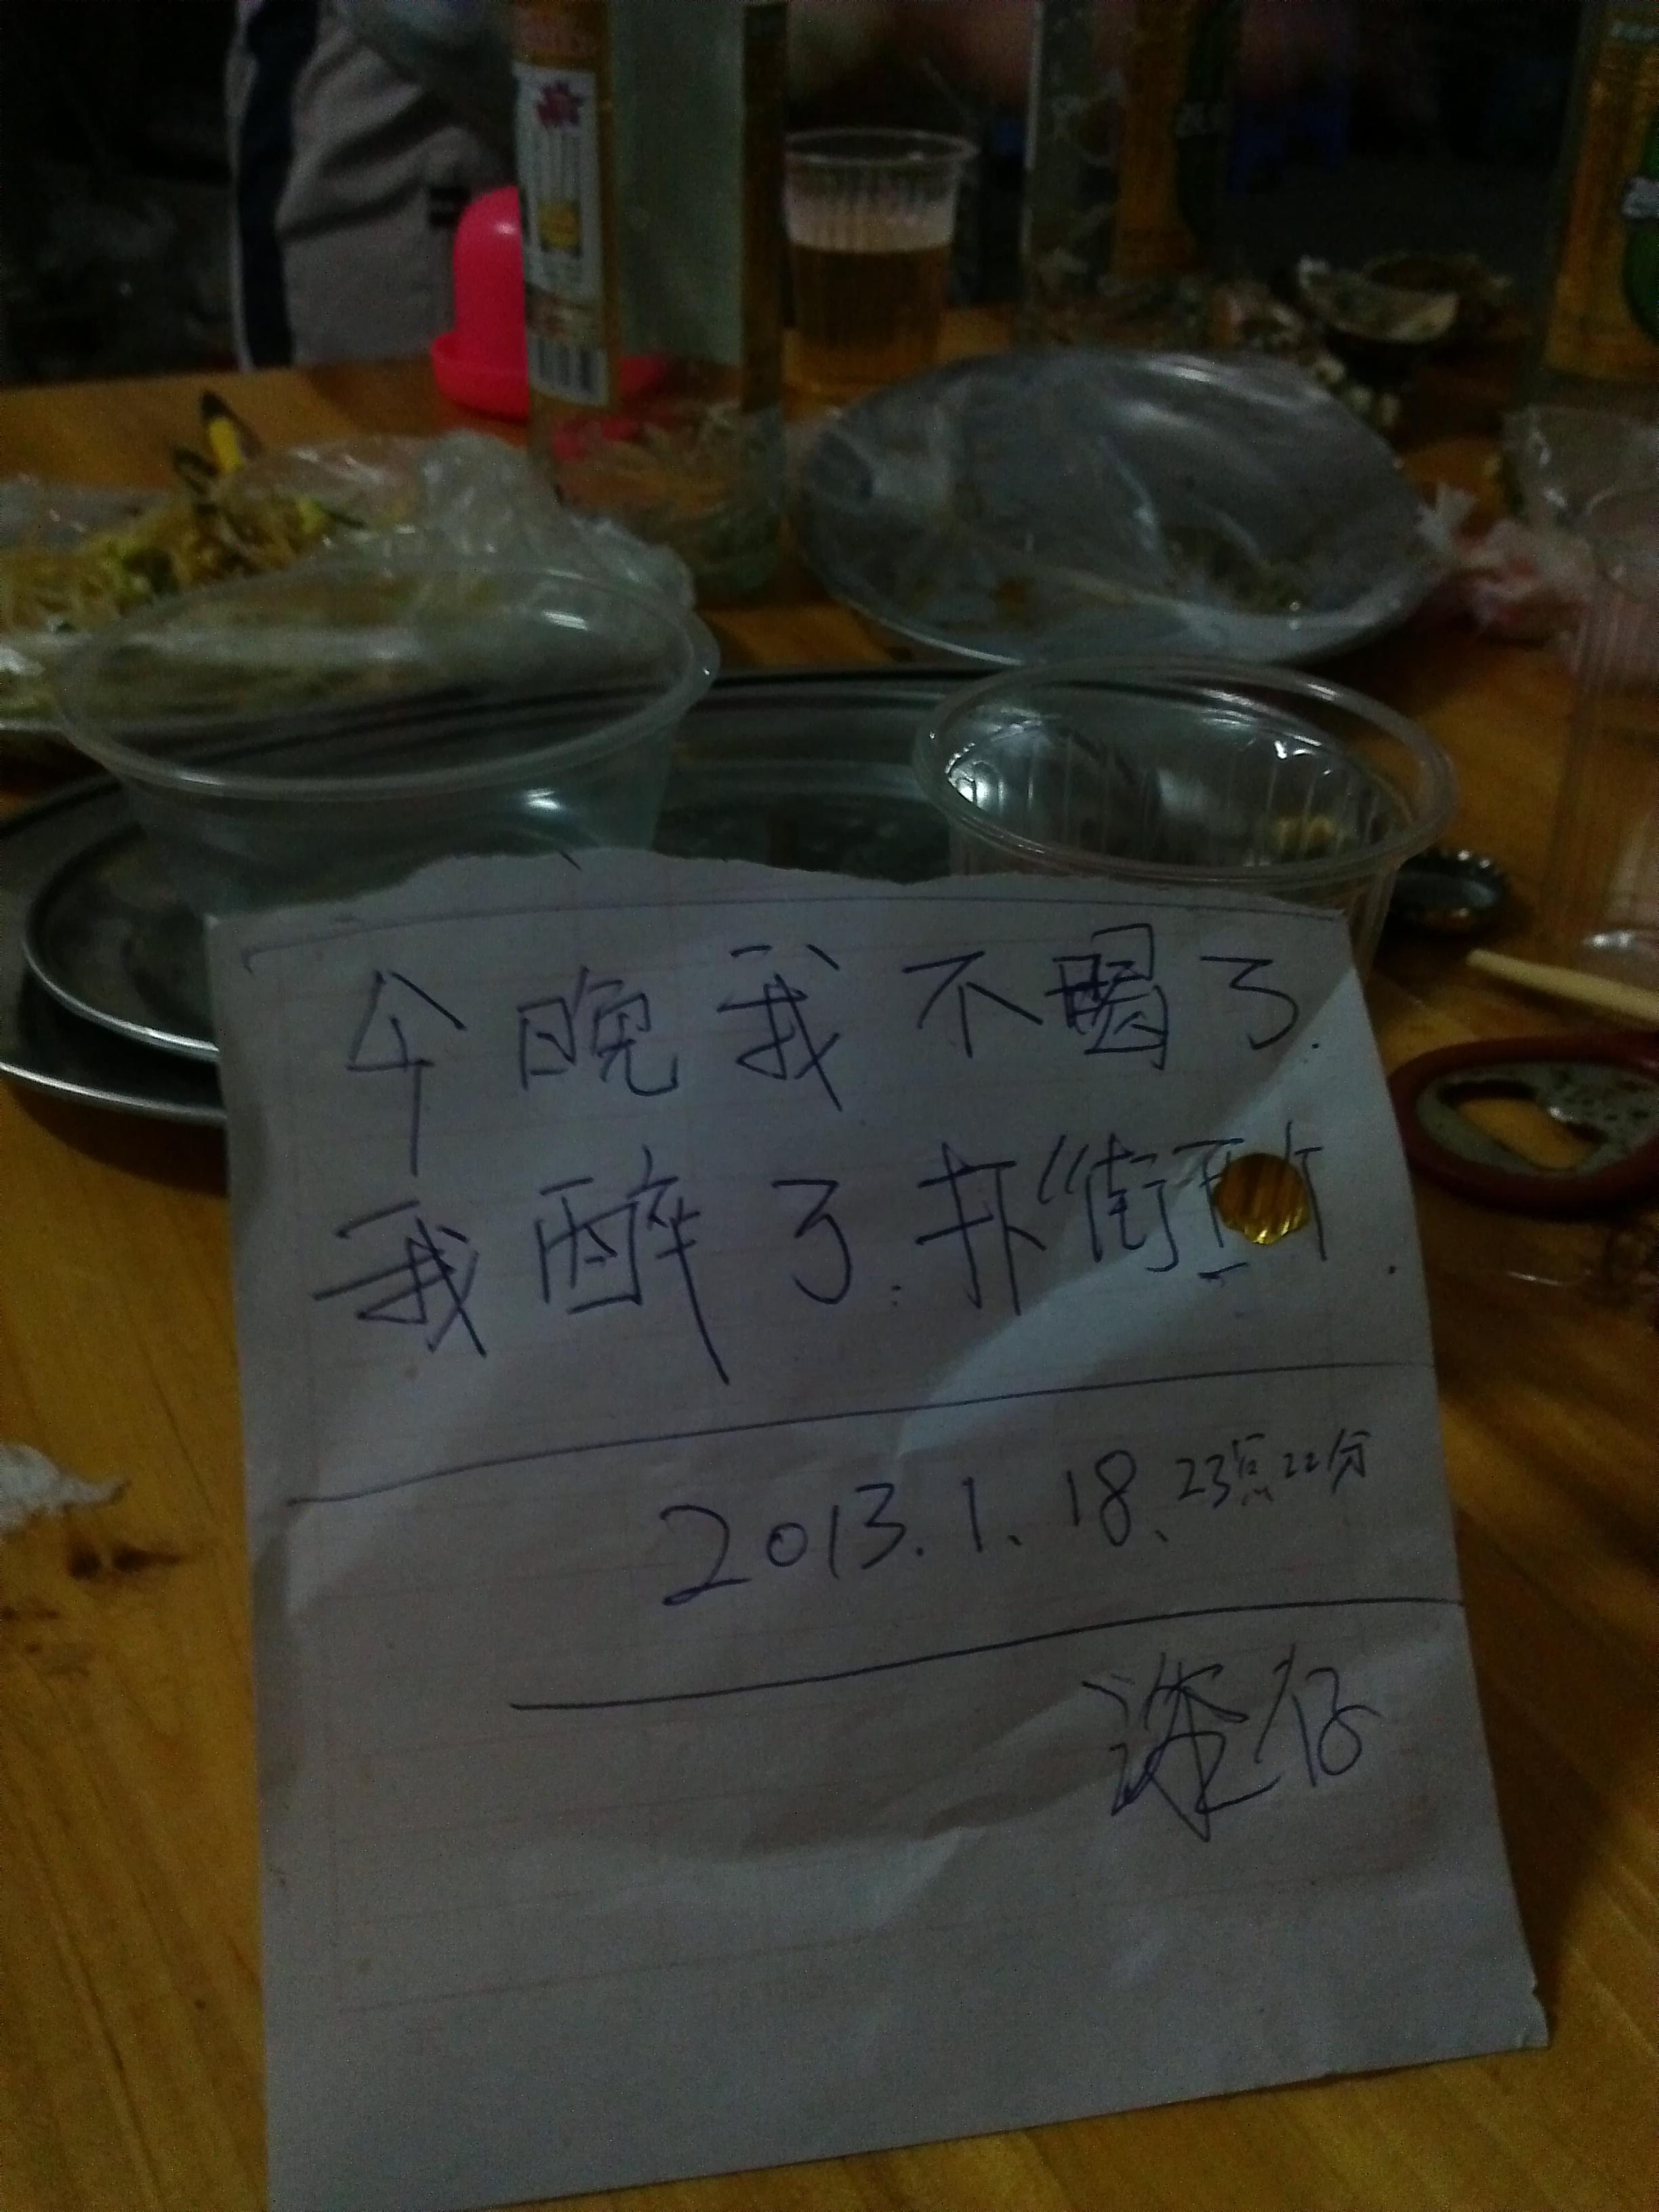 今晚我不喝了.
我醉了.扑街
2013.1.18、23点22分
仔